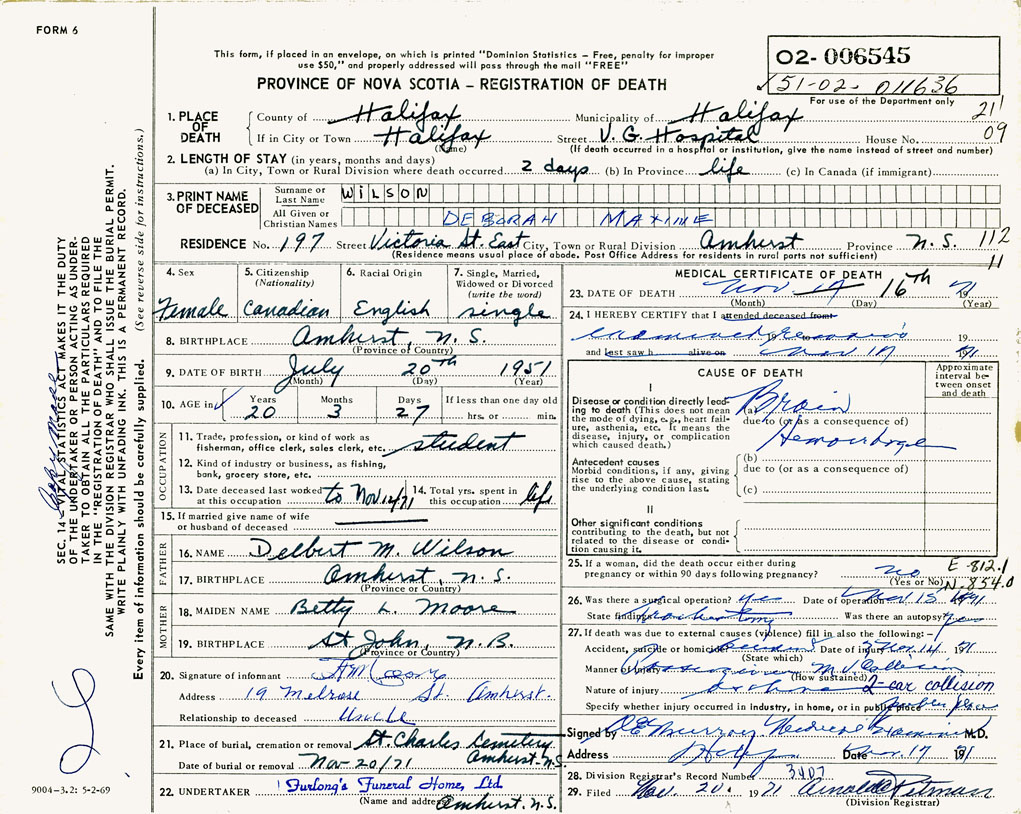 FORM 6
This form, if placed in an envelope, on which is printed "Dominion Statistics – Free, penalty for improper
use $50," and properly addressed will pass through the mail "FREE"
PROVINCE OF NOVA SCOTIA – REGISTRATION OF DEATH
02- 006545
51-02- 011636
For use of the Department only
21
09
1. PLACE OF DEATH
County of Halifax Municipality of Halifax
If in City or Town Halifax Street V. G. Hospital House No.
(Name) (If death occurred in a hospital or institution, give the name instead of street and number)
2. LENGTH OF STAY (in years, months and days)
(a) In City, Town or Rural Division where death occurred 2 days (b) In Province life (c) In Canada (if immigrant)
3. PRINT NAME OF DECEASED
Surname or Last Name WILSON
All Given or Christian Names DEBORAH MAXINE
RESIDENCE No. 197 Street Victoria St. East City, Town or Rural Division Amherst Province N.S. 112
(Residence means usual place of abode. Post Office Address for residents in rural parts not sufficient) 11
4. Sex Female
5. Citizenship (Nationality) Canadian
6. Racial Origin English
7. Single, Married, Widowed or Divorced (write the word) single
8. BIRTHPLACE Amherst, N.S.
(Province or Country)
9. DATE OF BIRTH July 20th 1951
(Month) (Day) (Year)
10. AGE in Years 20 Months 3 Days 27 If less than one day old hrs. or min.
OCCUPATION
11. Trade, profession, or kind of work as fisherman, office clerk, sales clerk, etc. student
12. Kind of industry or business, as fishing, bank, grocery store, etc.
13. Date deceased last worked at this occupation to Nov 12/71
14. Total yrs. spent in this occupation life
15. If married give name of wife or husband of deceased
FATHER
16. NAME Delbert M. Wilson
17. BIRTHPLACE Amherst, N.S.
(Province or Country)
MOTHER
18. MAIDEN NAME Betty L. Moore
19. BIRTHPLACE St John, N.B.
(Province or Country)
20. Signature of informant
Address 19 Melrose St. Amherst.
Relationship to deceased Uncle
21. Place of burial, cremation or removal St. Charles Cemetery
Amherst, N.S.
Date of burial or removal Nov 20/71
22. UNDERTAKER Furlong's Funeral Home, Ltd.
(Name and address) Amherst, N.S.
MEDICAL CERTIFICATE OF DEATH
23. DATE OF DEATH Nov 16th 1971
(Month) (Day) (Year)
24. I HEREBY CERTIFY that I attended deceased from
examined remains 19 to 19
and last saw h alive on Nov 17 1971
CAUSE OF DEATH
Approximate interval between onset and death
I
Disease or condition directly leading to death (This does not mean the mode of dying, e.g., heart failure, asthenia, etc. It means the disease, injury, or complication which caused death.)
(a) Brain
due to (or as a consequence of)
Hemorrhage
Antecedent causes
Morbid conditions, if any, giving rise to the above cause, stating the underlying condition last.
(b)
due to (or as a consequence of)
(c)
II
Other significant conditions contributing to the death, but not related to the disease or condition causing it.
25. If a woman, did the death occur either during pregnancy or within 90 days following pregnancy? no
(Yes or No)
E-812.1
N-854.0
26. Was there a surgical operation? yes Date of operation Nov 15 1971
State findings Was there an autopsy? yes
27. If death was due to external causes (violence) fill in also the following:–
Accident, suicide or homicide Accident Date of injury Nov 14 1971
(State which)
Manner of injury M.V. Collision
(How sustained)
Nature of injury 2-car collision
Specify whether injury occurred in industry, in home, or in public place public place
Signed by Murray Medical Examiner M.D.
Address Halifax Date Nov. 17 1971
28. Division Registrar's Record Number 3407
29. Filed Nov. 20. 1971 Arnold Pitman
(Division Registrar)
SEC. 14–VITAL STATISTICS ACT MAKES IT THE DUTY
OF THE UNDERTAKER OR PERSON ACTING AS UNDER-
TAKER TO OBTAIN ALL THE PARTICULARS REQUIRED
IN THE "REGISTRATION OF DEATH" AND TO FILE THE
SAME WITH THE DIVISION REGISTRAR WHO SHALL ISSUE THE BURIAL PERMIT.
WRITE PLAINLY WITH UNFADING INK. THIS IS A PERMANENT RECORD.
Every item of information should be carefully supplied. (See reverse side for instructions.)
9004-3.2: 5-2-69